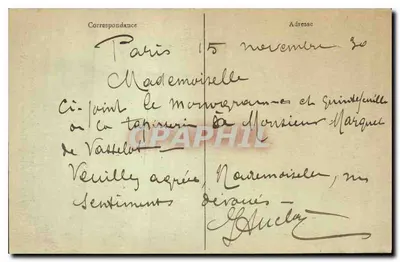 Correspondance Adresse
Paris 15 novembre 30
Mademoiselle
Ci-joint le monogramme et
ou la tapisserie à Monsieur Marquet
CPARHIL
de Vasselot
Veuillez agréer, Mademoiselle, mes
sentiments dévoués